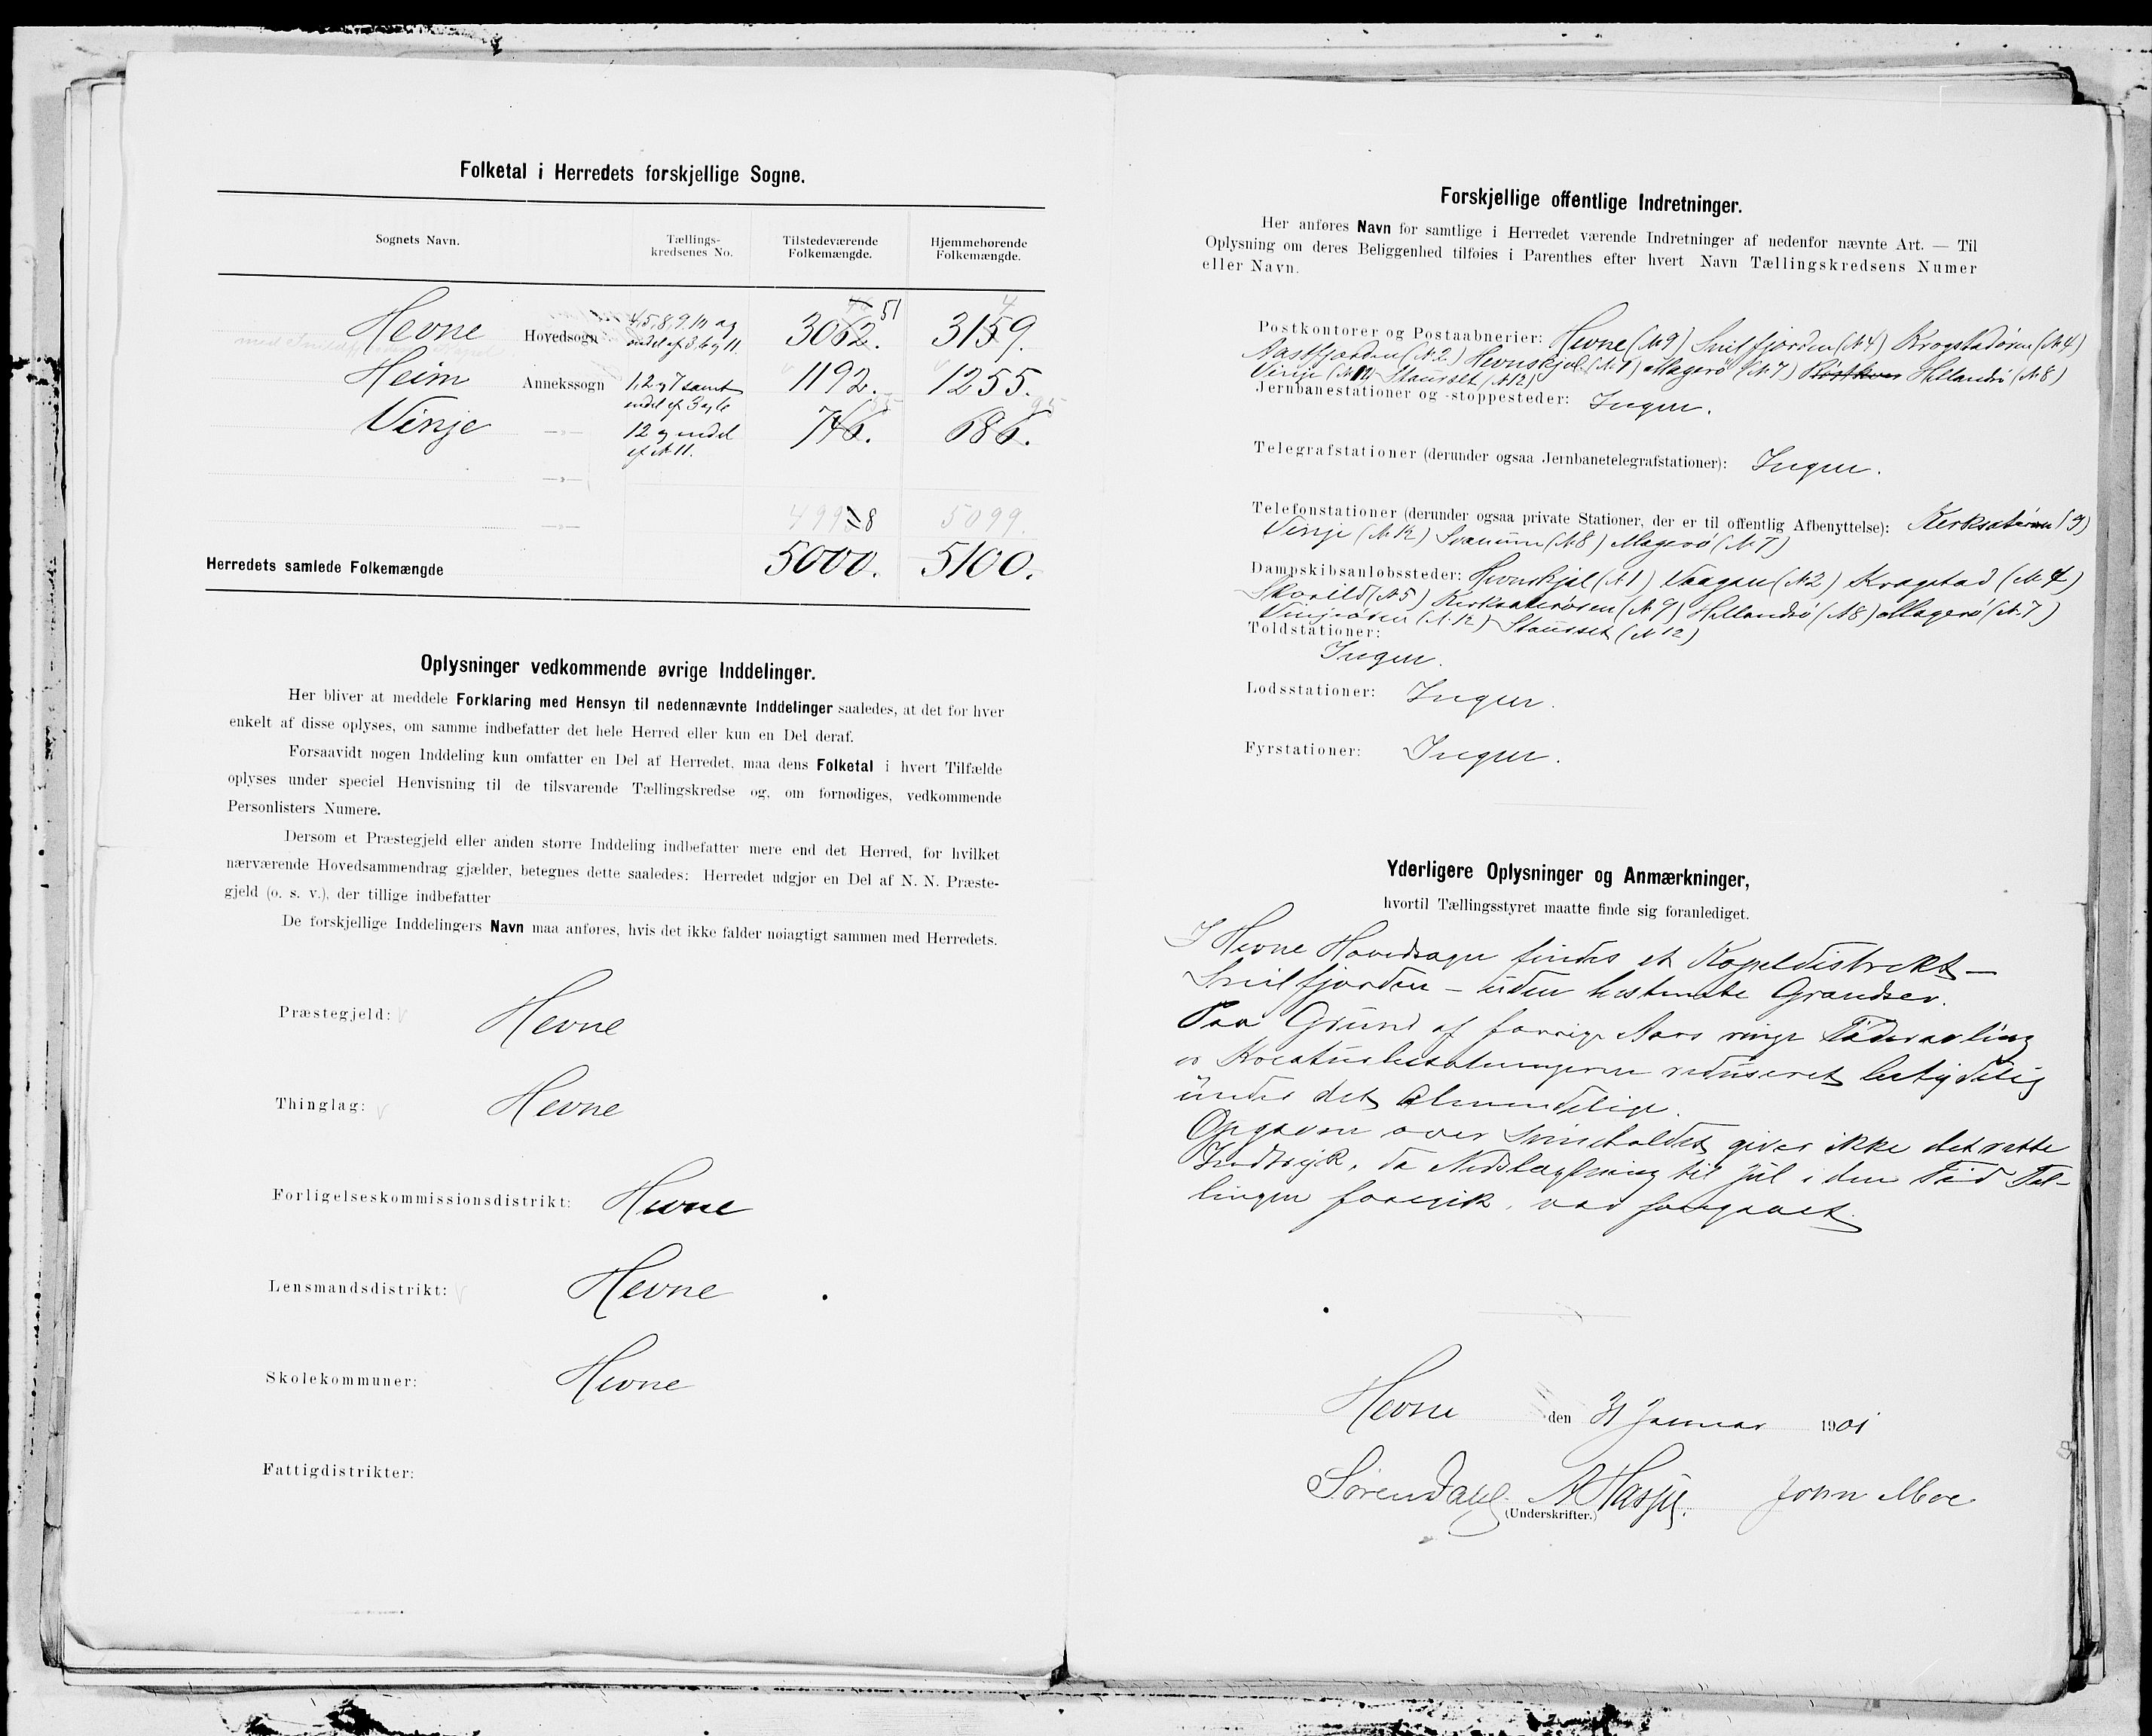 Folketal i Herredets forskjellige Sogne.
Sognets Navn.
Tællings-
kredsenes No.
Tilstedeværende
Folkemængde.
Hjemmehørende
Folkemængde.
Hevne Hovedsogn 4,5,8,9,10 og 3062. 51 3159. 4
endel af 3, 6 og 11.
Heim Annekssogn 1, 2 og 7 samt 1192. 1255.
endel af 3 og 6
Vinje —»— 12 og endel 746. 55 686. 95
af N 11.
—»—
—»— 499 8 5099.
Herredets samlede Folkemængde 5000. 5100.
Oplysninger vedkommende øvrige Inddelinger.
Her bliver at meddele Forklaring med Hensyn til nedennævnte Inddelinger saaledes, at det for hver
enkelt af disse oplyses, om samme indbefatter det hele Herred eller kun en Del deraf.
Forsaavidt nogen Inddeling kun omfatter en Del af Herredet, maa dens Folketal i hvert Tilfælde
oplyses under speciel Henvisning til de tilsvarende Tællingskredse og, om fornødiges, vedkommende
Personlisters Numere.
Dersom et Præstegjeld eller anden større Inddeling indbefatter mere end det Herred, for hvilket
nærværende Hovedsammendrag gjælder, betegnes dette saaledes: Herredet udgjør en Del af N. N. Præste-
gjeld (o. s. v.), der tillige indbefatter
De forskjellige Inddelingers Navn maa anføres, hvis det ikke falder nøiagtigt sammen med Herredets.
Præstegjeld: Hevne
Thinglag: Hevne
Forligelseskommissionsdistrikt: Hevne
Lensmandsdistrikt: Hevne
Skolekommuner: Hevne
Fattigdistrikter:
Forskjellige offentlige Indretninger.
Her anføres Navn for samtlige i Herredet værende Indretninger af nedenfor nævnte Art. — Til
Oplysning om deres Beliggenhed tilføies i Parenthes efter hvert Navn Tællingskredsens Numer
eller Navn.
Postkontorer og Postaabnerier: Hevne (N 9) Snilfjorden (N 4) Krogstadøren (N 4)
Aastfjorden (N 2) Hevnskjel (N 1) Magerö (N 7) Hellandsö (N 8)
Vinje (N 12) Stamset (N 12)
Jernbanestationer og -stoppesteder: Ingen.
Telegrafstationer (derunder ogsaa Jernbanetelegrafstationer): Ingen.
Telefonstationer (derunder ogsaa private Stationer, der er til offentlig Afbenyttelse): Kirksæterören (9)
Vinje (N 12) Svanem (N 8) Magerö (N 7)
Dampskibsanløbssteder: Hevnskjel (N 1) Vaagan (N 2) Krogstad (N 4)
(N 5) Kirksæterøren (N 9) Hellandsö (N 8) Magerö (N 7)
Vinjeøren (N 12) Stamset (N 12)
Toldstationer:
Ingen.
Lodsstationer: Ingen.
Fyrstationer: Ingen.
Yderligere Oplysninger og Anmærkninger,
hvortil Tællingsstyret maatte finde sig foranlediget.
I Hevne Hovedsogn findes et Kapeldistrikt —
Snilfjorden — uden bestemte Grændser.
Paa Grund af forrige Aars ringe Föderavling
er Kreaturbesætningerne reduseret betydelig
under det Almindelige.
Opgaven over Svineholdet giver ikke det rette
Indtryk, da Nedslagtning til Jul i den Tid Tæl-
lingen foregik, var foregaaet.
Hevne den 31 Januar 1901
Søren Dahl. A Hasfjel. John Moe
(Underskrifter.)